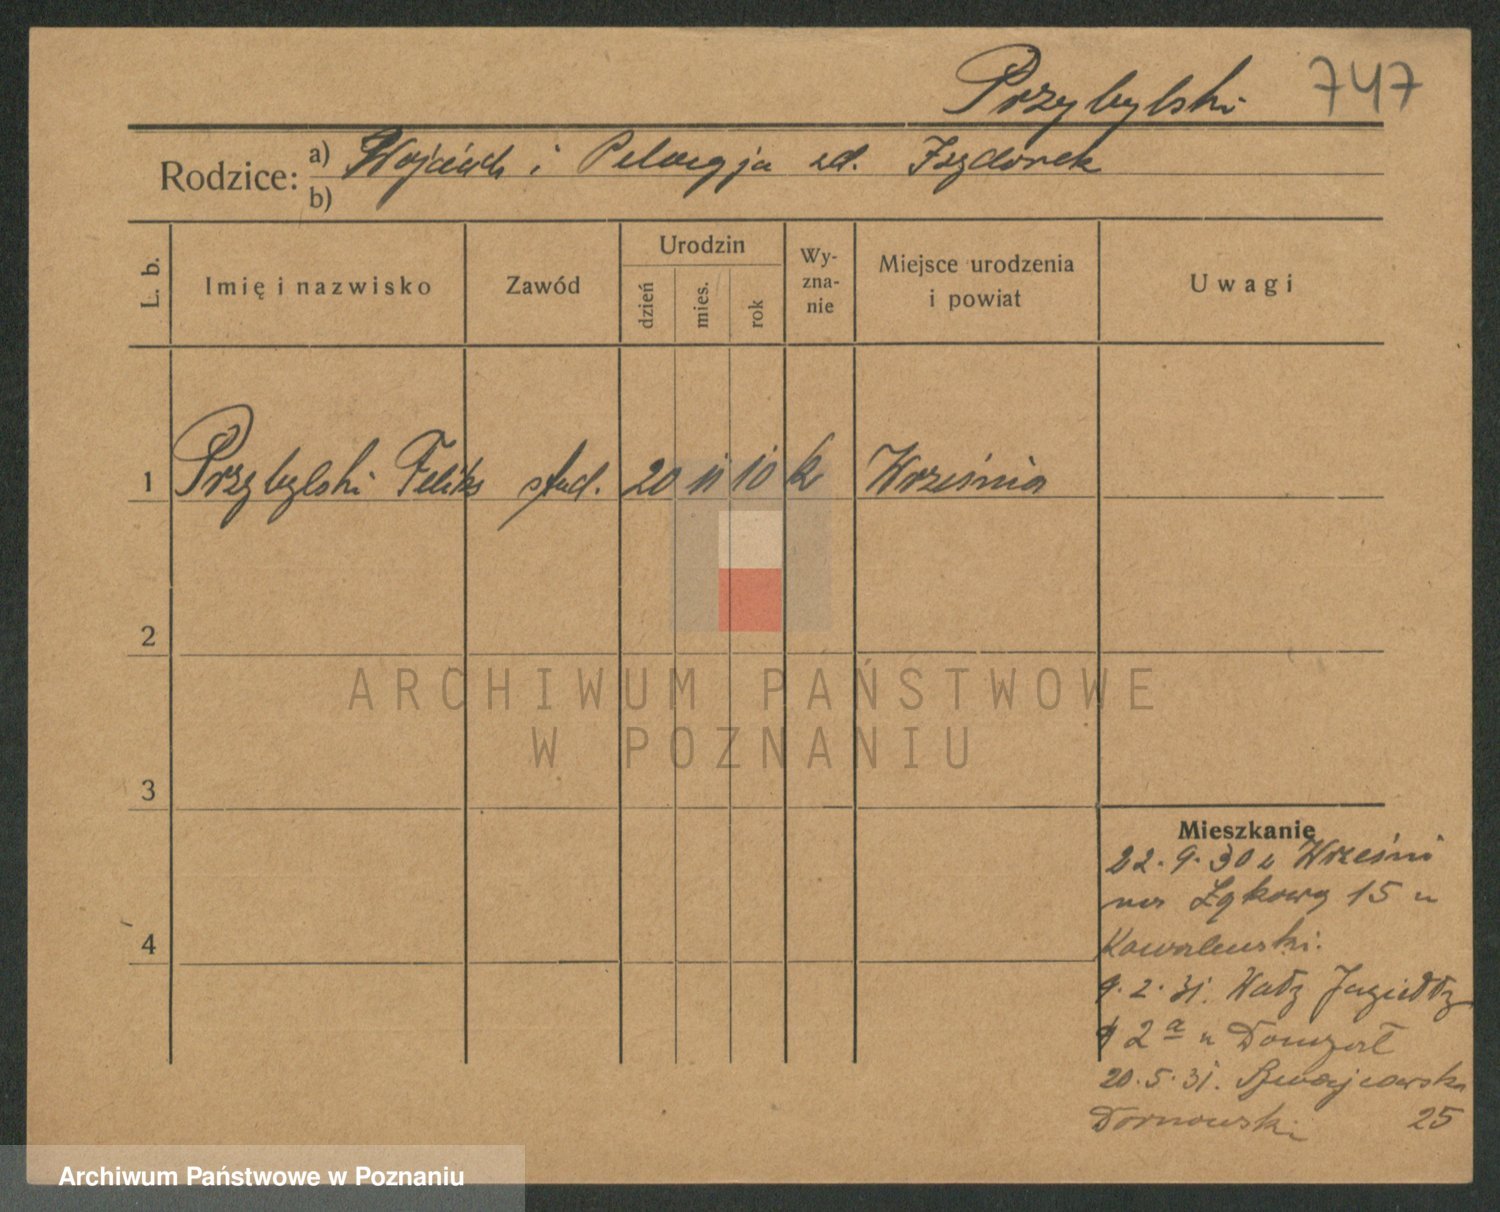 Przybylski 747
Rodzice: a) Wojciech i Pelagja zd. Izydorek
b)
L. b. Imię i nazwisko Zawód Urodzin dzień mies. rok Wy-zna-nie Miejsce urodzenia i powiat Uwagi
1 Przybylski Feliks stud. 20 11 10 k Września
2
ARCHIWUM PAŃSTWOWE
W POZNANIU
3
4
Mieszkanie
22.9.30 z Wrześni
na Łąkową 15 u
Kowalewski.
9.2.31. Wały Jagiełły
2a u
20.5.31. Szwajcarska
Dornowski 25
Archiwum Państwowe w Poznaniu